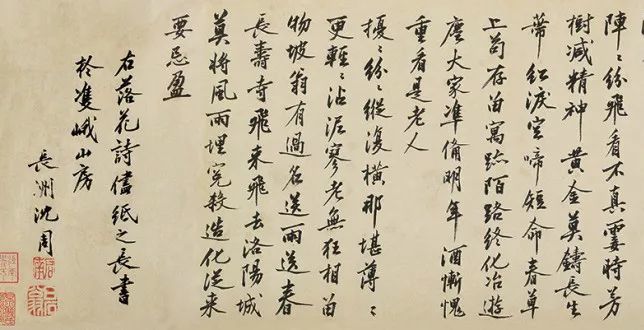 陣〻紛飛看不真霎時芳
樹減精神黃金莫鑄長生
蒂紅淚空啼短命春草
上苟存留寓跡陌路終化冶遊
塵大家準備明年酒慚愧
重看是老人
擾〻紛〻縱復橫那堪薄〻
更輕〻沾泥寥老無狂相留
物坡翁有過名送雨送春
長壽寺飛來飛去洛陽城
莫將風雨埋冤殺造化從來
要忌盈
右落花詩信紙之長書
於雙峨山房
長洲沈周